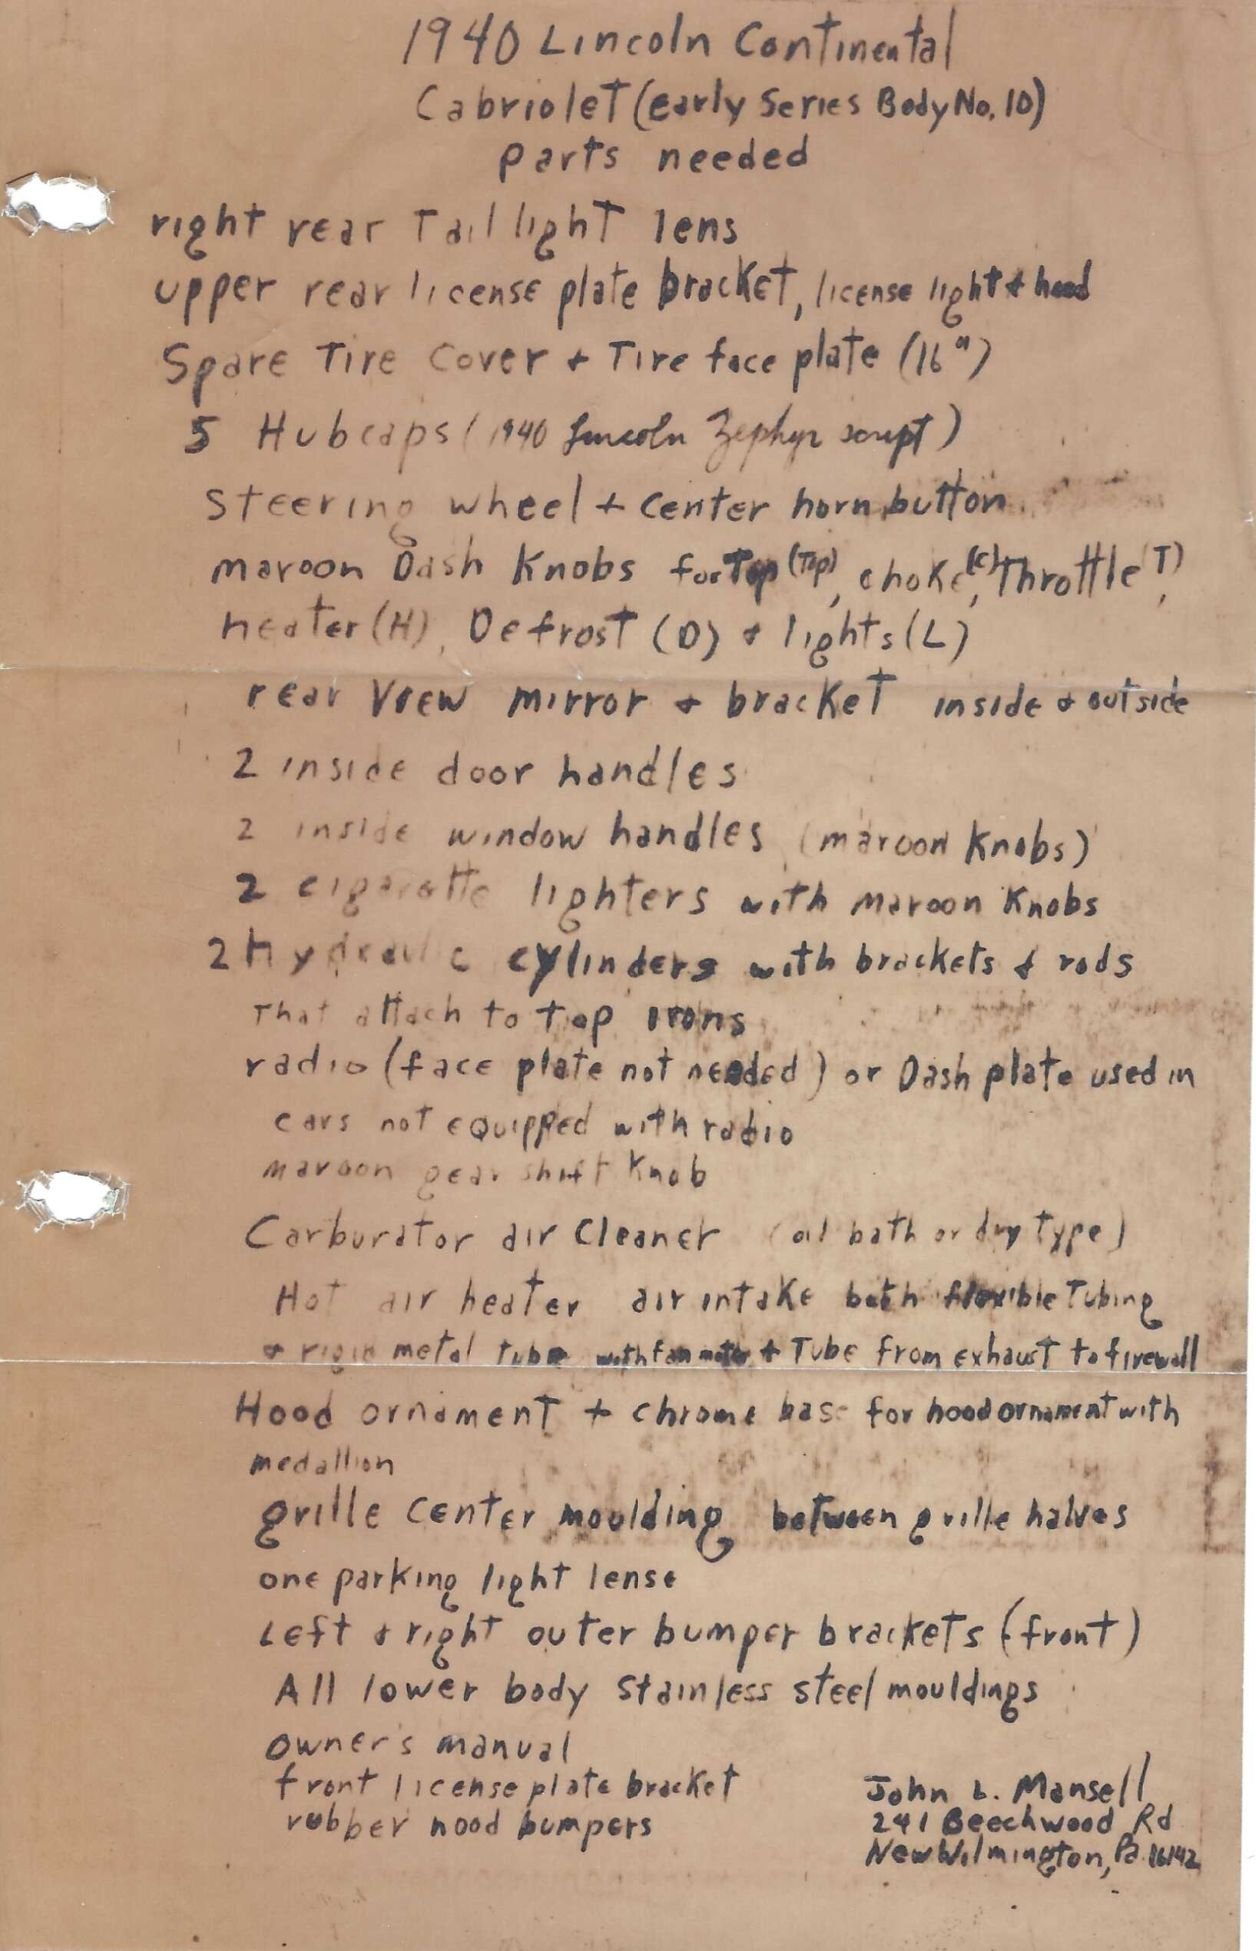 1940 Lincoln Continental
Cabriolet (early Series Body No. 10)
parts needed
right rear Tail light lens
upper rear license plate bracket, license light + hood
Spare Tire Cover + Tire face plate (16")
5 Hubcaps (1940 Lincoln Zephyr script)
Steering wheel + center horn button
maroon Dash Knobs for Top (Top), choke (C), Throttle (T),
heater (H), Defrost (D) + lights (L)
rear View mirror + bracket inside + outside
2 inside door handles
2 inside window handles (maroon Knobs)
2 cigarette lighters with maroon Knobs
2 hydraulic cylinders with brackets & rods
That attach to top irons
radio (face plate not needed) or Dash plate used in
cars not equipped with radio
maroon gear shift Knob
Carburator air Cleaner (oil bath or dry type)
Hot air heater air intake both flexible Tubing
+ rigid metal tube with fan motor + Tube from exhaust to firewall
Hood ornament + chrome base for hood ornament with
medallion
grille center moulding between grille halves
one parking light lense
Left + right outer bumper brackets (front)
All lower body Stainless steel mouldings
owner's manual
front license plate bracket
rubber hood bumpers
John L. Mansell
241 Beechwood Rd
New Wilmington, Pa. 16142